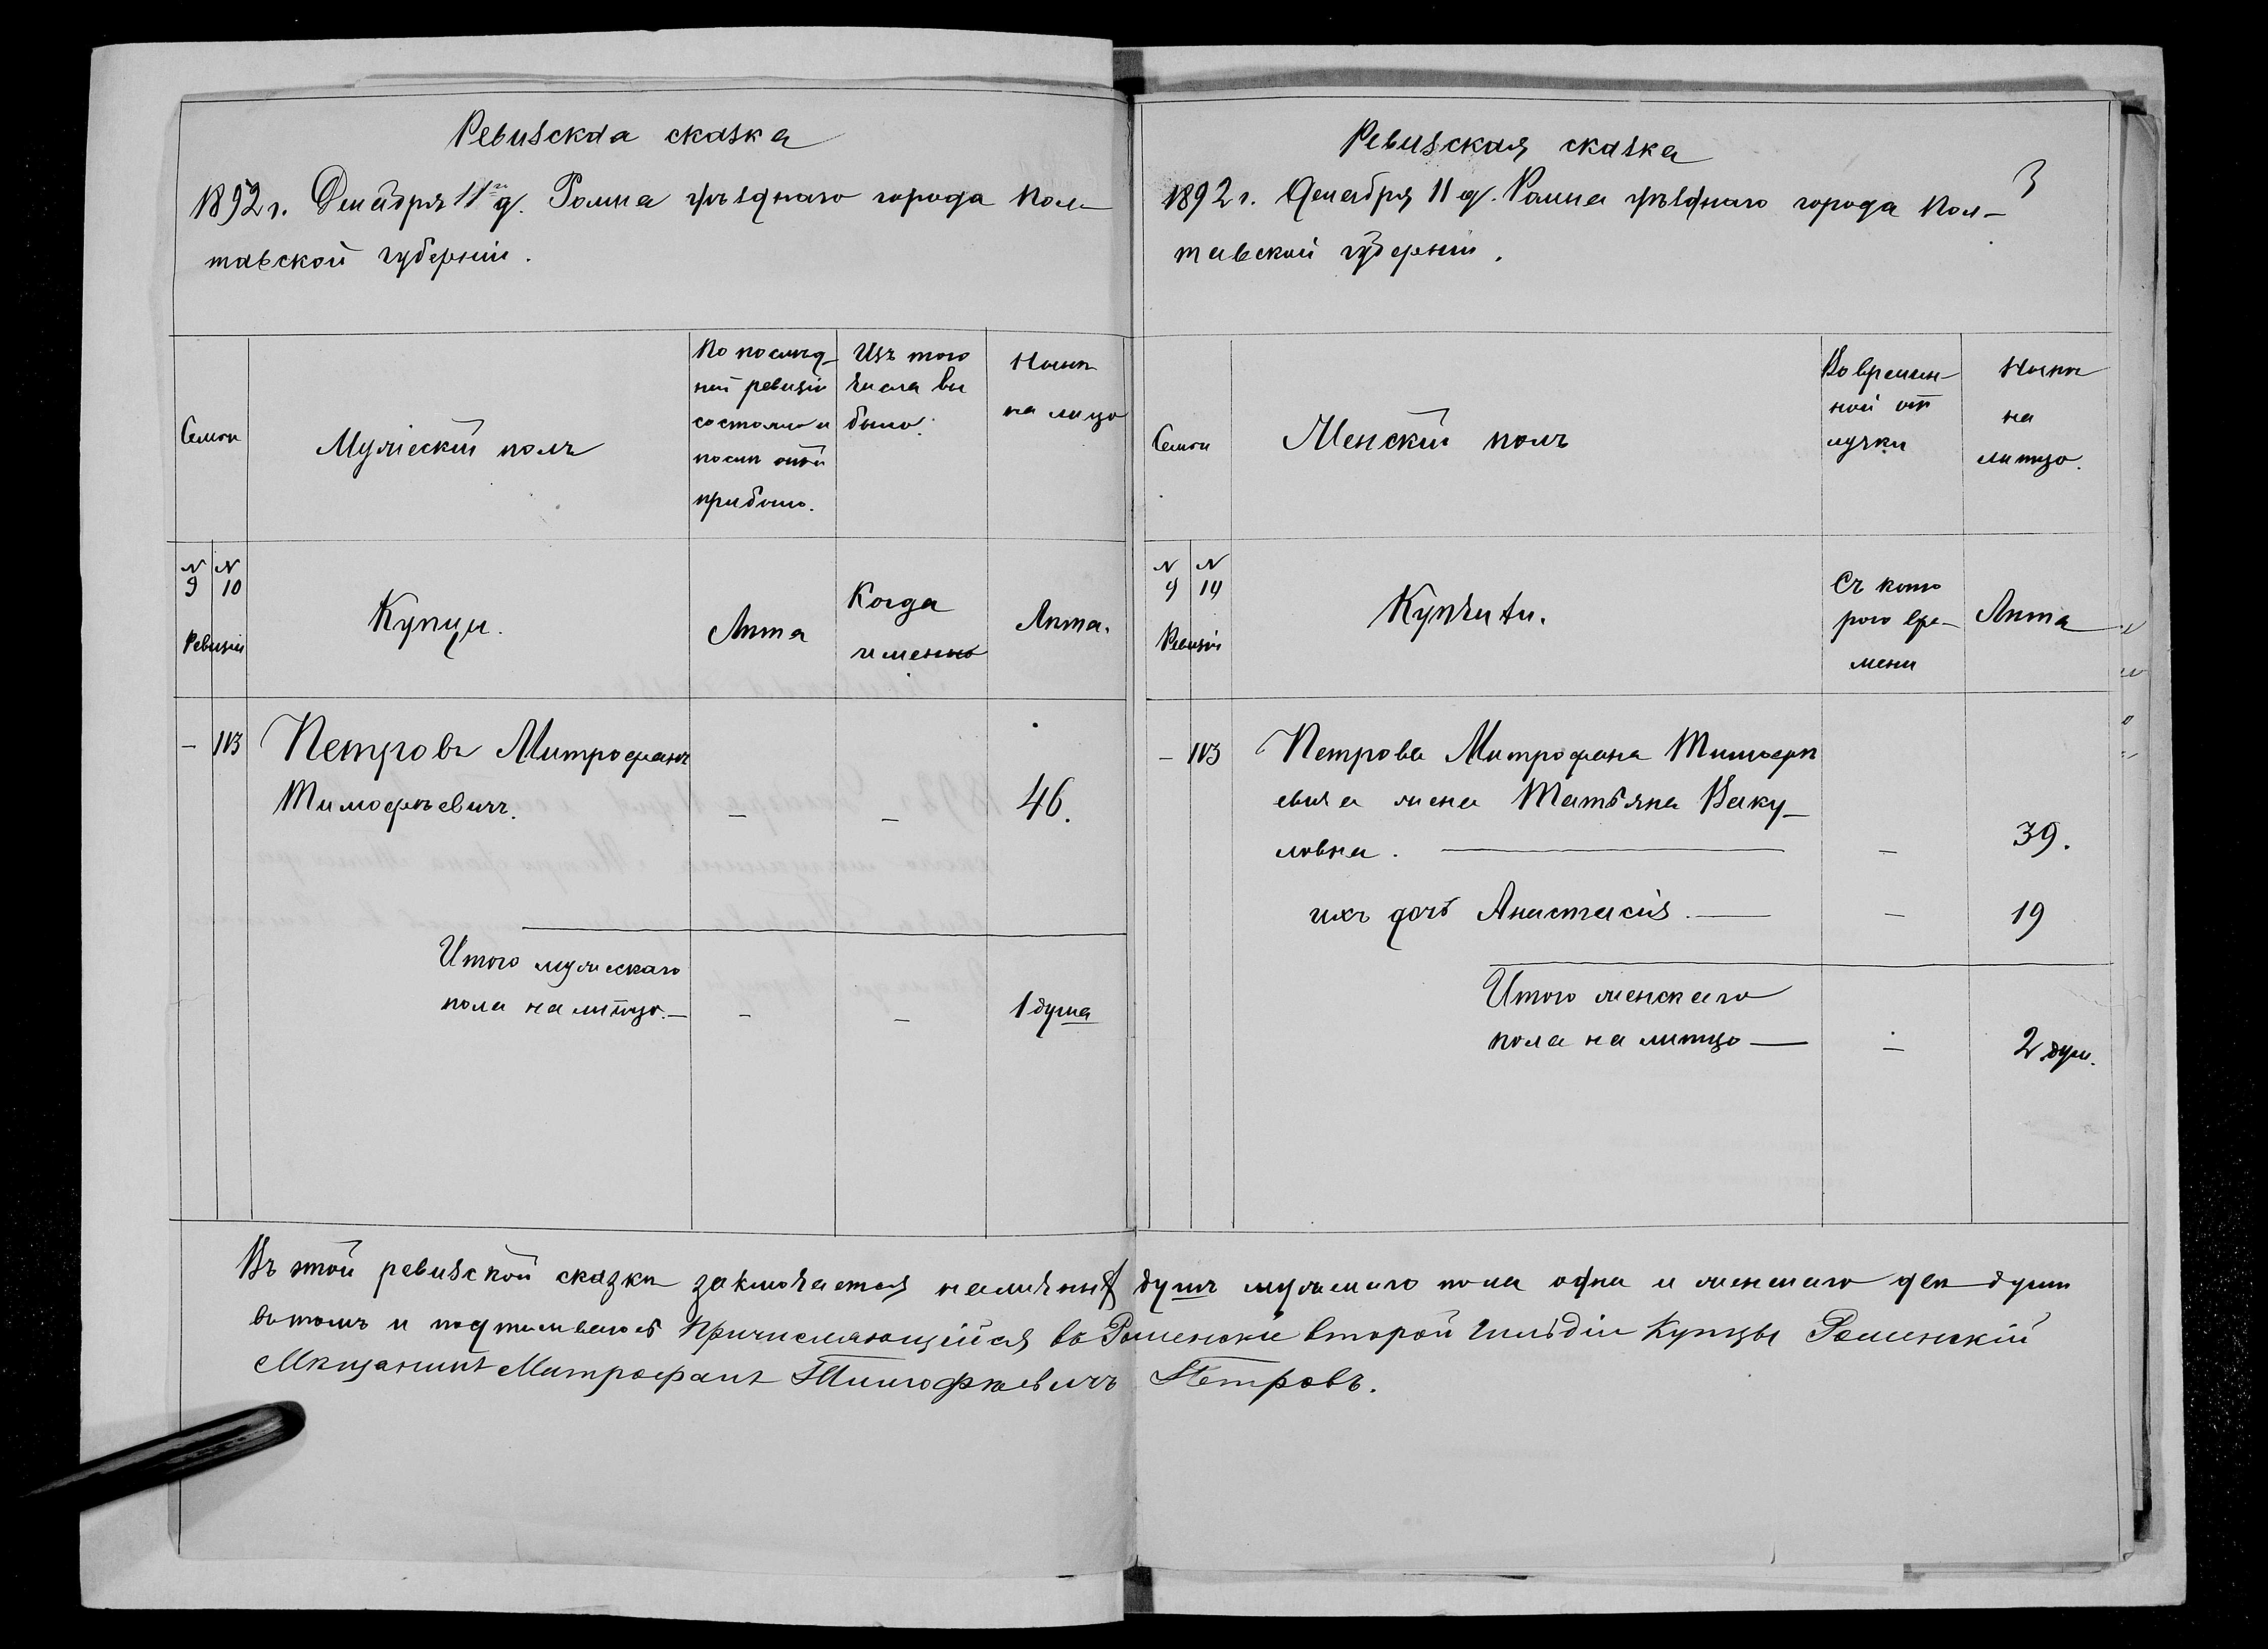 Ревизская сказка
1892 г. Декабря 11го д. Ромна уѣзднаго города Пол-
тавской губерніи.
Семьи
Мужескій полъ
По послѣд-
ней ревизіи
состояло и
послѣ оной
прибыло.
Изъ того
числа вы
было.
Нынѣ
на лицо
N 9 N 10
Ревизіи
Купцы.
Лѣта
Когда
именно
Лѣта.
– 113 Петровъ Митрофанъ
Тимофѣевичъ. – – 46.
Итого мужескаго
пола на лицо. – – – 1 душа
Ревизская сказка
3
1892 г. Декабря 11 д. Ромна уѣзднаго города Пол-
тавской губерніи.
Семьи
Женскій полъ
Во времен-
ной от
лучки
Нынѣ
на
лицо.
N 9 N 10
Ревизіи
Купчихи.
Съ кото
рого вре-
мени
Лѣта
– 113 Петрова Митрофана Тимофѣ
евича жена Татьяна Ваку-
ловна. – 39.
ихъ дочь Анастасія. – – 19
Итого женскаго
пола на лицо – – 2 душ.
Въ этой ревизской сказки заключается наличныхъ душъ мужескаго пола одна и женскаго двѣ души
въ томъ и подписываюсь Причисляющійся въ Роменскіе второй Гильдіи Купцы Роменскій
Мѣщанинъ Митрофанъ Тимофѣевичъ Петровъ.